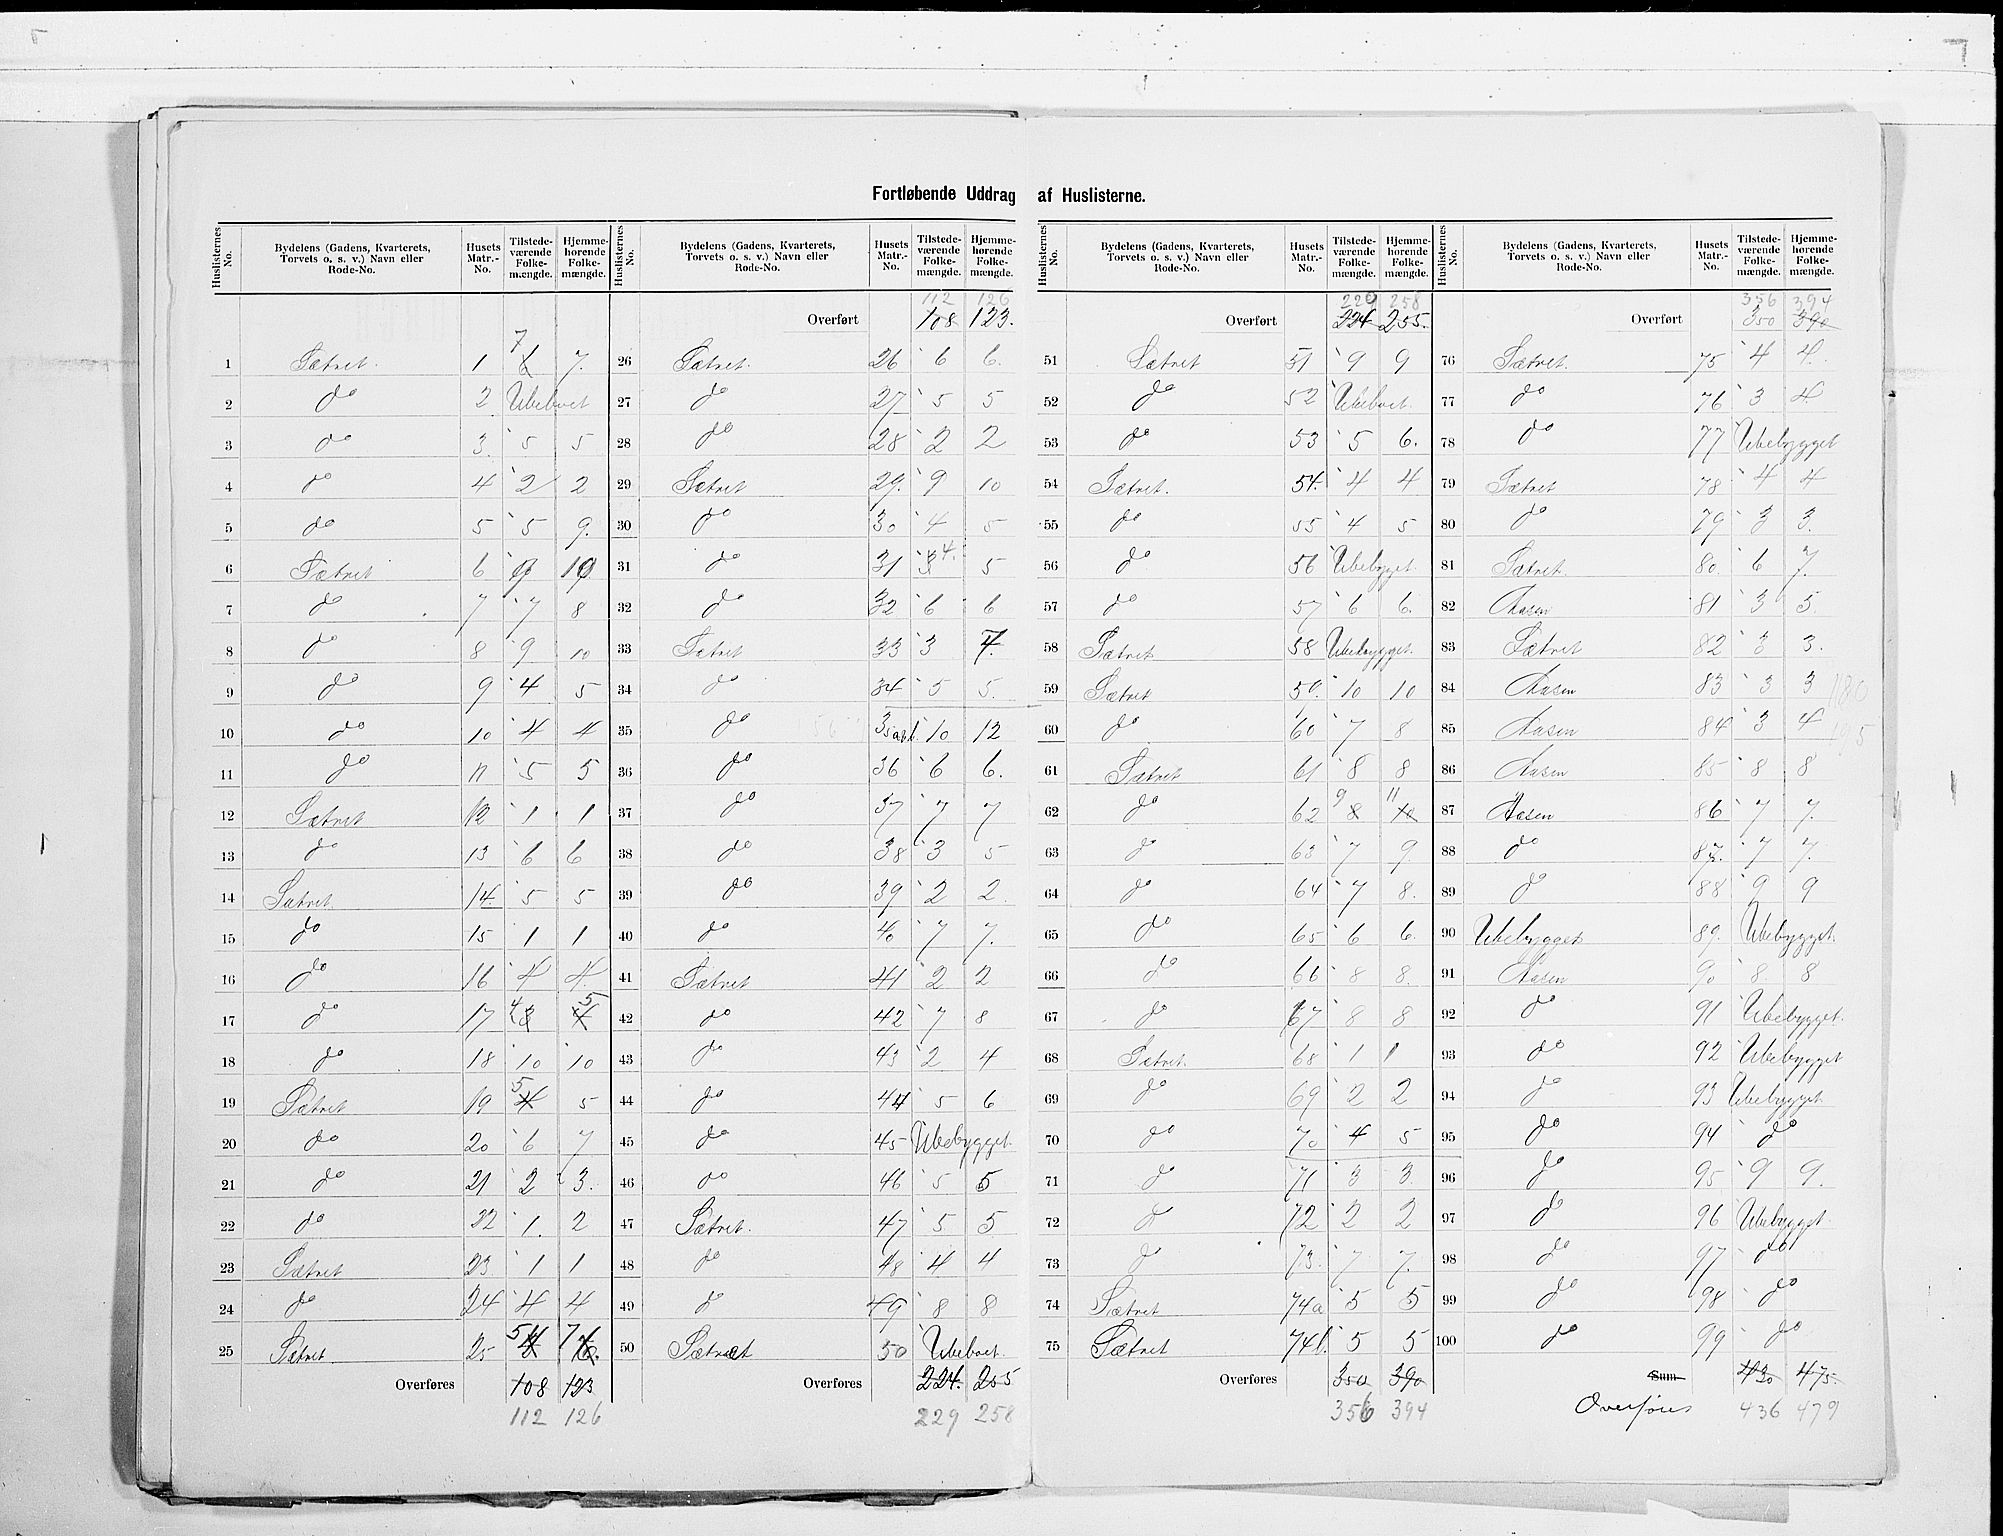 Fortløbende Uddrag af Huslisterne.
Huslisternes No. | Bydelens (Gadens, Kvarterets, Torvets o. s. v.) Navn eller Rode-No. | Husets Matr.-No. | Tilstedeværende Folkemængde. | Hjemmehørende Folkemængde.
1 Sætret. 1 7 7.
2 do 2 Ubeboet
3 do 3 5 5
4 do 4 2 2
5 do 5 5 9.
6 Sætret 6 9 10
7 do 7 7 8
8 do 8 9 10
9 do 9 4 5
10 do 10 4 4
11 do 11 5 5
12 Sætret 12 1 1
13 do 13 6 6
14 Sætret. 14. 5 5
15 do 15 1 1
16 do 16 4 4.
17 do 17 4 3 5 4
18 do 18 10 10
19 Sætret 19 5 4 5
20 do 20 6 7
21 do 21 2 3.
22 do 22 1. 2
23 Sætret 23 1 1
24 do 24 4 4
25 Sætret. 25 5 4 7 6.
Overføres 108 123
112 126
Huslisternes No. | Bydelens (Gadens, Kvarterets, Torvets o. s. v.) Navn eller Rode-No. | Husets Matr.-No. | Tilstedeværende Folkemængde. | Hjemmehørende Folkemængde.
112 126
Overført 108 123.
26 Sætret. 26 6 6.
27 do 27 5 5
28 do 28 2 2
29 Sætret 29. 9 10
30 do 30 4 5
31 do 31 3 4. 5
32 do 32 6 6
33 Sætret 33 3 4.
34 do 34 5 5.
35 do 35a&b. 10 12
36 do 36 6 6.
37 do 37 7 7
38 do 38 3 5
39 do 39 2 2.
40 do 40 7 7.
41 Sætret 41 2 2
42 do 42 7 8
43 do 43 2 4
44 do 44 5 6
45 do 45 Ubebygget.
46 do 46 5 5
47 Sætret. 47 5 5
48 do 48 4 4
49 do 49 8 8
50 Sætret 50 Ubeboet.
Overføres 224. 255
229 258
Huslisternes No. | Bydelens (Gadens, Kvarterets, Torvets o. s. v.) Navn eller Rode-No. | Husets Matr.-No. | Tilstedeværende Folkemængde. | Hjemmehørende Folkemængde.
229 258
Overført 224 255.
51 Sætret 51 9 9
52 do 52 Ubeboet.
53 do 53 5 6.
54 Sætret. 54. 4 4
55 do 55 4 5
56 do 56 Ubebygget.
57 do 57 6 6.
58 Sætret 58 Ubebygget.
59 Sætret 59. 10 10
60 do 60 7 8
61 Sætret 61 8 8
62 do 62 9 8 11 10
63 do 63 7 9.
64 do 64 7 8.
65 do 65 6 6.
66 do 66 8 8.
67 do 67 8 8
68 Sætret. 68 1 1
69 do 69 2 2
70 do 70 4 5
71 do 71 3 3.
72 do 72 2 2
73 do 73. 7 7.
74 Sætret 74a 5 5
75 Sætret 74b. 5 5
Overføres 350 390
356 394
Huslisternes No. | Bydelens (Gadens, Kvarterets, Torvets o. s. v.) Navn eller Rode-No. | Husets Matr.-No. | Tilstedeværende Folkemængde. | Hjemmehørende Folkemængde.
356 394
Overført 350 390
76 Sætret. 75 4 4.
77 do 76 3 4.
78 do 77 Ubebygget
79 Sætret 78 4 4
80 do 79 3 3.
81 Sætret. 80. 6 7.
82 Aasen 81 3 5.
83 Sætret 82 3 3.
84 Aasen 83 3 3
85 Aasen 84 3 4
86 Aasen 85 8 8
87 Aasen 86 7 7.
88 do 87. 7 7.
89 do 88 9 9
90 Ubebygget 89. Ubebygget.
91 Aasen 90 8. 8
92 do 91 Ubebygget.
93 do 92 Ubebygget
94 do 93 Ubebygget.
95 do 94 do
96 do 95 9 9.
97 do 96 Ubebygget.
98 do 97 do
99 do 98 do
100 do 99 do
Sum 430 475.
Overføres 436 479